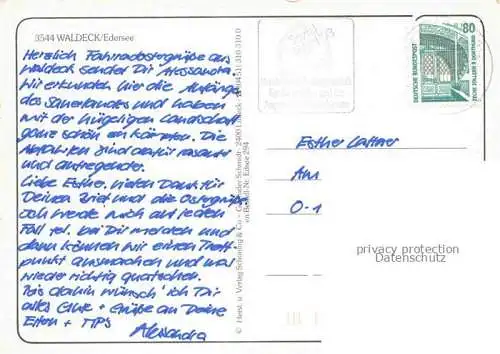 3544 WALDECK/Edersee
Herzlich Fahrradostergrüße aus
Waldeck sendet Dir Alessandra.
Wir erkunden hier die Anfänge
des Sauerlandes und haben
mit der hügeligen Landschaft
ganz schön zu kämpfen. Die
Abfahrten sind dafür rasante
und aufregende.
Liebe Esther, vielen Dank für
Deinen Brief und die Ostergrüße
Ich werde mich auf jeden
Fall tel. bei Dir melden und
dann können wir einen Treff-
punkt ausmachen und mal
wieder richtig quatschen.
Bis dahin wünsch' ich Dir
alles Gute + Grüße an Deine
Eltern + TIPS
Alessandra
© Horst. u. Verlag Schöning & Co · Gebrüder Schmidt · 2400 Lübeck
Bestell-Nr. Edsee 294
80
DEUTSCHE BUNDESPOST
ZECHE ZOLLERN II DORTMUND
Esther
Am
O-1
privacy protection
Datenschutz